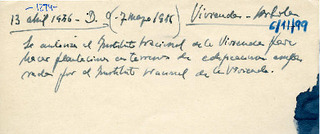 1274-
13 abril 1956 - D. (-7 mayo 1956) Vivienda - Arboles
6/11/99
Se autoriza al Instituto Nacional de la Vivienda para
hacer plantaciones en terrenos de edificaciones
por el Instituto Nacional de la Vivienda.